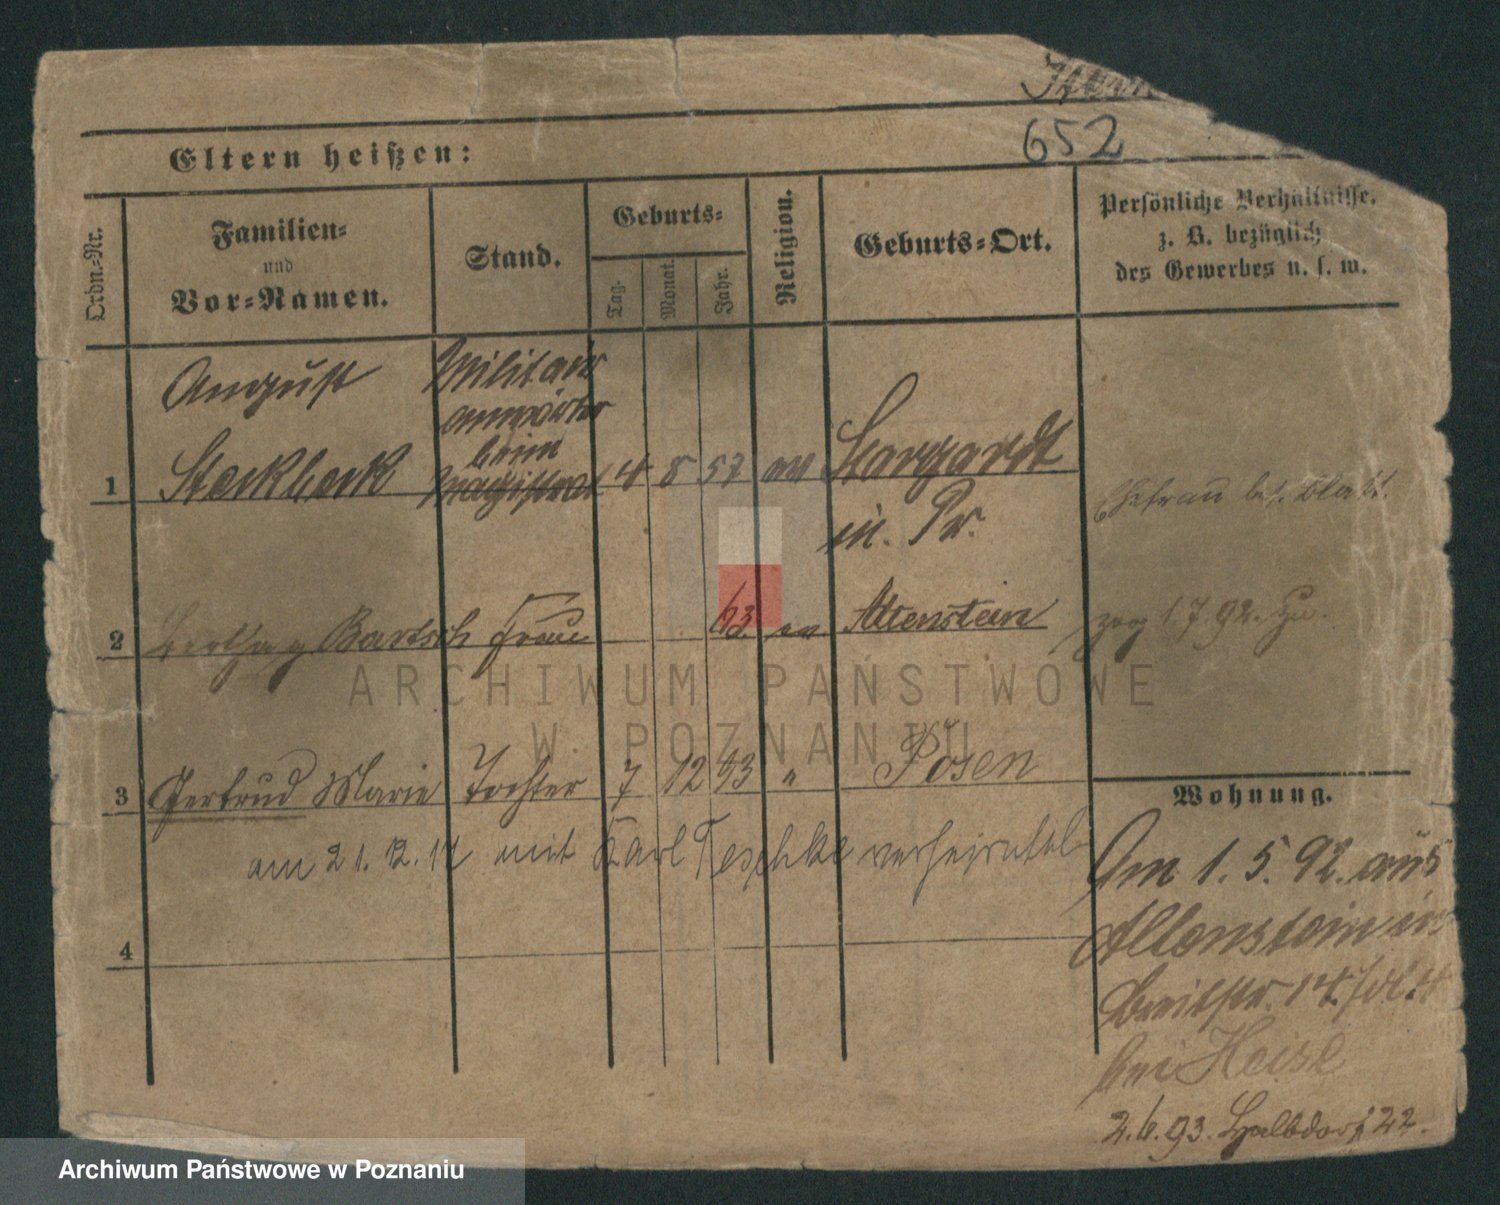 652
Eltern heißen:
Ordn.-Nr.
Familien-
und
Vor-Namen.
Stand.
Geburts-
Tag.
Monat.
Jahr.
Religion.
Geburts-Ort.
Persönliche Verhältnisse,
z. B. bezüglich
des Gewerbes u. s. w.
August Militair
anwärter
beim
1 Steckbeck Magistrat 4 8 57 ev Stargardt
in Pr.
Ehefrau bes. Blatt.
2 Bertha g Bartsch Frau 63 ev Allenstein
zog 1.7.92. zu.
3 Gertrud Marie Tochter 7 12 93 " Posen
am 21.12.12 mit Karl Teschke verheiratet
4
Wohnung.
Am 1.5.92. aus
Allenstein in
Breitstr. 14
bei Heise
2.6.93. Halbdorf 22.
ARCHIWUM PAŃSTWOWE
W POZNANIU
Archiwum Państwowe w Poznaniu